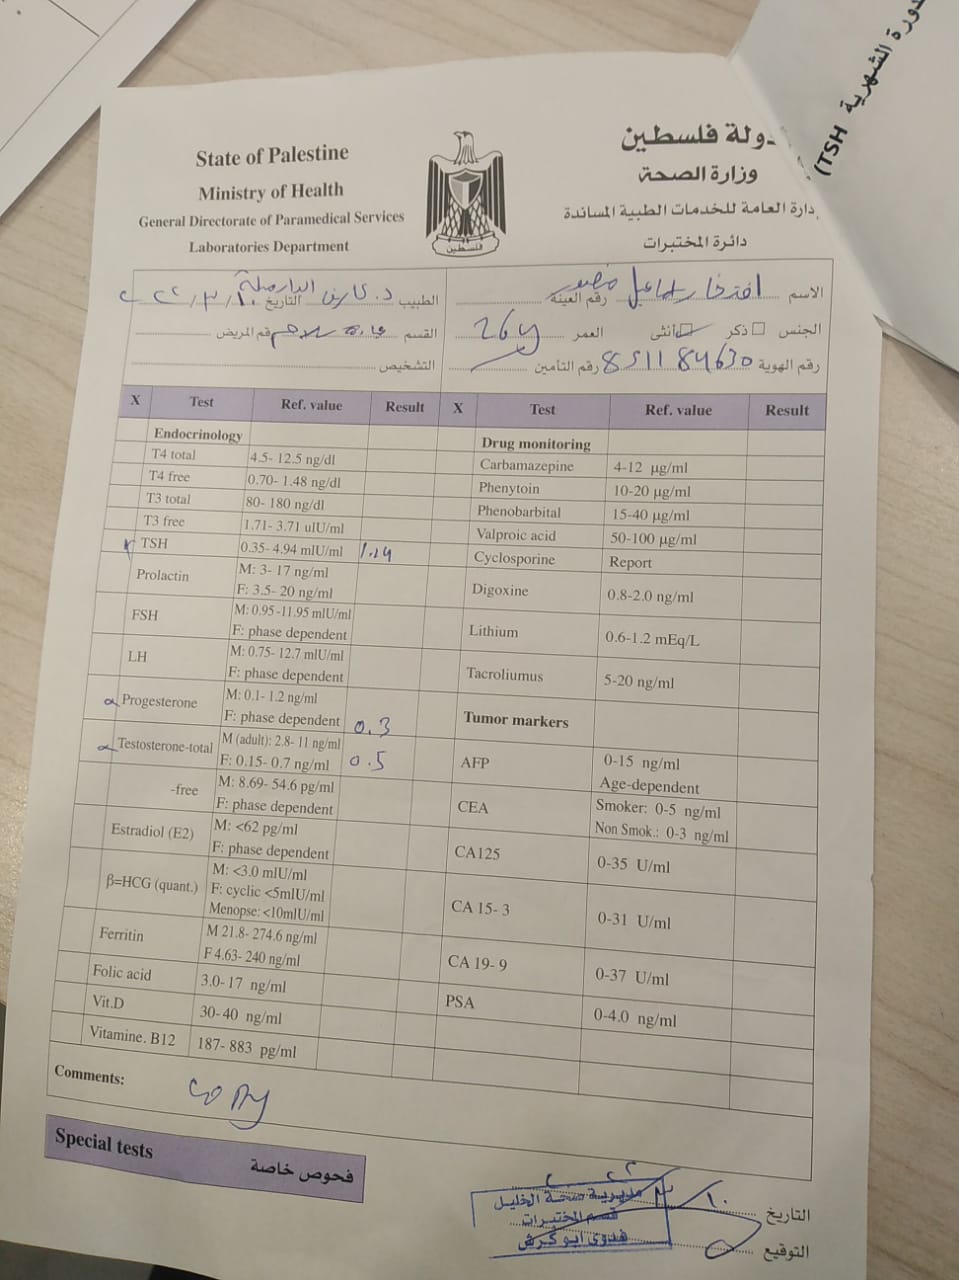 دورة الشهرية
TSH)
State of Palestine
Ministry of Health
General Directorate of Paramedical Services
Laboratories Department
فلسطين
دولة فلسطين
وزارة الصحة
دارة العامة للخدمات الطبية المساندة
دائرة المختبرات
الاسم افتخار اسماعيل رقم العينة
الطبيب د. التاريخ
الجنس ذكر أنثى العمر 26y
القسم رقم المريض
رقم الهوية 851184630 رقم التأمين
التشخيص
X Test Ref. value Result X Test Ref. value Result
Endocrinology Drug monitoring
T4 total 4.5- 12.5 ng/dl Carbamazepine 4-12 µg/ml
T4 free 0.70- 1.48 ng/dl Phenytoin 10-20 µg/ml
T3 total 80- 180 ng/dl Phenobarbital 15-40 µg/ml
T3 free 1.71- 3.71 uIU/ml Valproic acid 50-100 µg/ml
TSH 0.35- 4.94 mIU/ml Cyclosporine Report
Prolactin M: 3- 17 ng/ml Digoxine 0.8-2.0 ng/ml
F: 3.5- 20 ng/ml
FSH M: 0.95 -11.95 mIU/ml Lithium 0.6-1.2 mEq/L
F: phase dependent
LH M: 0.75- 12.7 mIU/ml Tacroliumus 5-20 ng/ml
F: phase dependent
Progesterone M: 0.1- 1.2 ng/ml Tumor markers
F: phase dependent 0.3
Testosterone-total M (adult): 2.8- 11 ng/ml AFP 0-15 ng/ml
F: 0.15- 0.7 ng/ml 0.5 Age-dependent
-free M: 8.69- 54.6 pg/ml CEA Smoker: 0-5 ng/ml
F: phase dependent Non Smok.: 0-3 ng/ml
Estradiol (E2) M: <62 pg/ml CA125 0-35 U/ml
F: phase dependent
β=HCG (quant.) M: <3.0 mIU/ml CA 15- 3 0-31 U/ml
F: cyclic <5mIU/ml
Menopse: <10mIU/ml
Ferritin M 21.8- 274.6 ng/ml CA 19- 9 0-37 U/ml
F 4.63- 240 ng/ml
Folic acid 3.0- 17 ng/ml PSA 0-4.0 ng/ml
Vit.D 30- 40 ng/ml
Vitamine. B12 187- 883 pg/ml
Comments:
copy
Special tests فحوص خاصة
مديرية صحة الخليل
قسم المختبرات
فدوى ابو كرش
التاريخ
التوقيع